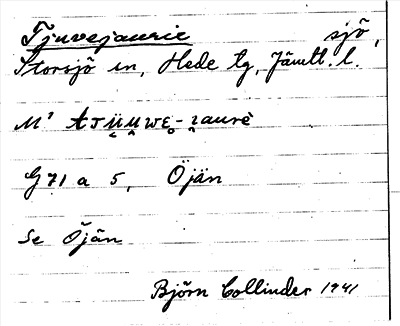 Tjuvejaurie sjö,
Storsjö sn, Hede tg, Jämtl. l.
G 71 a 5, Öjän
Se Öjän
Björn Collinder 1941